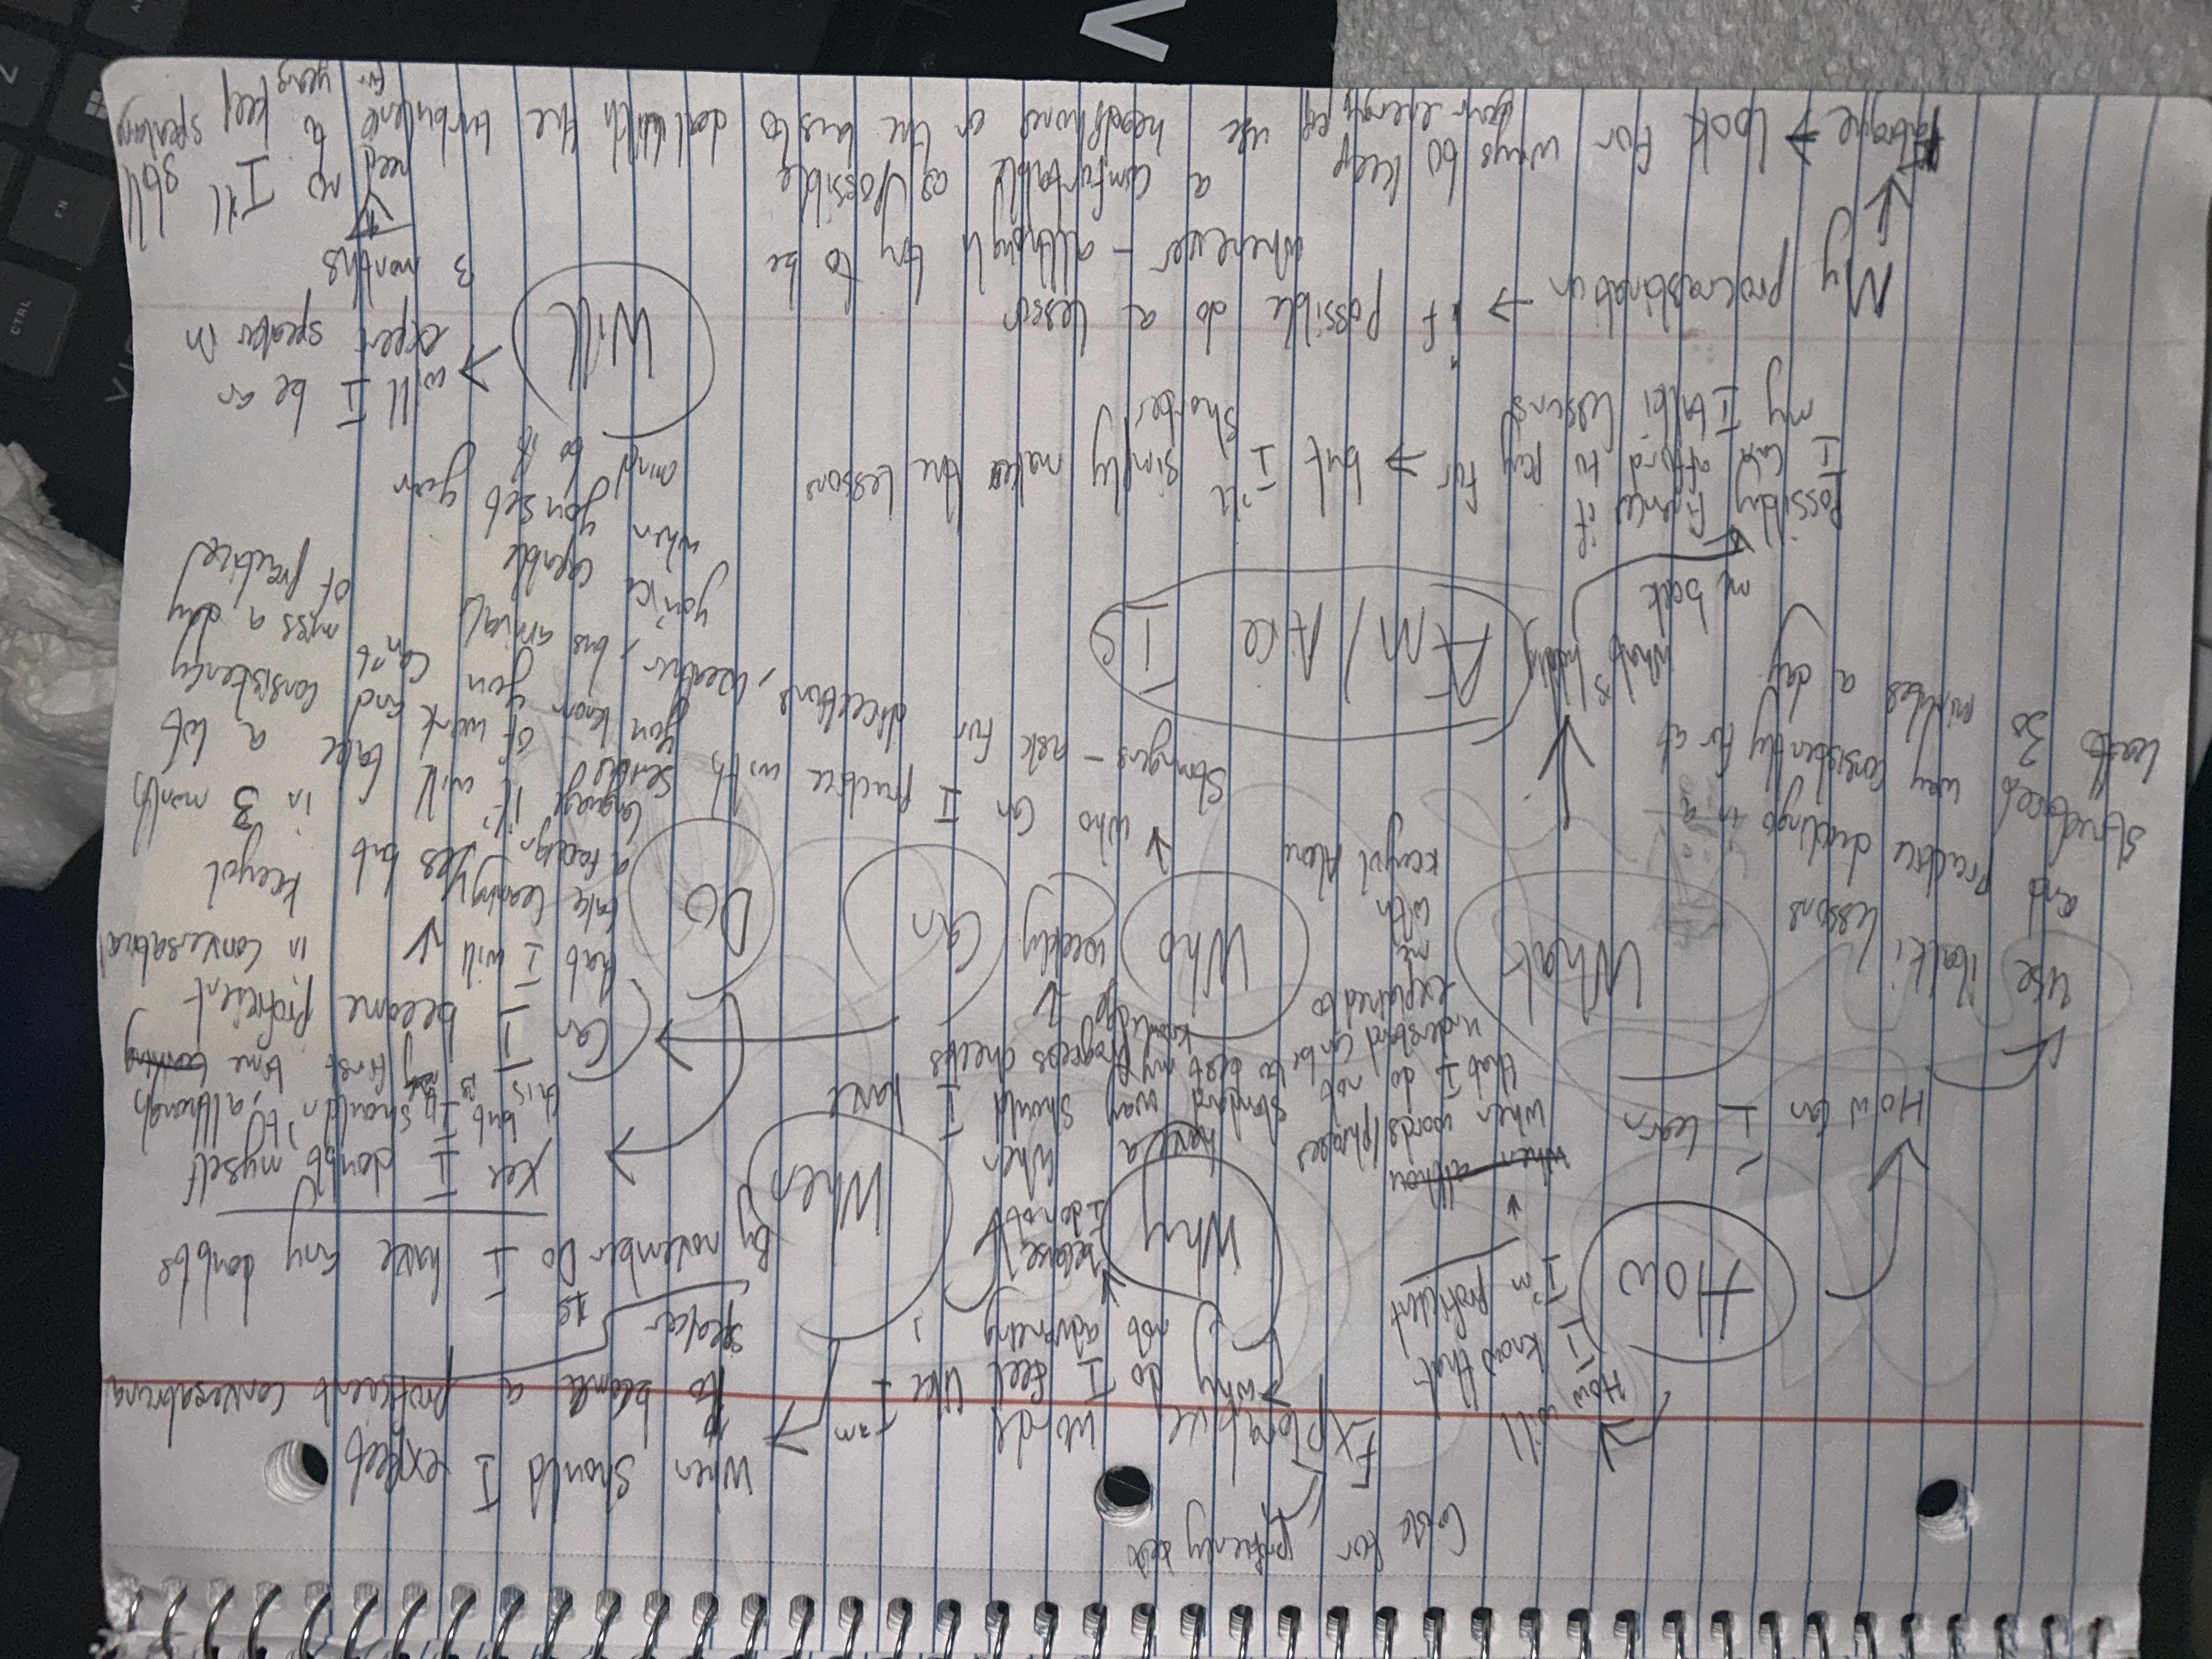 Code for
Explorative words
How
How will
I know that
I'm proficient
when words/phrases
that I do not
understand can be
explained to
me
with
Kreyol Alone
How can I learn
use italki lessons
and practice duolingo in a
structured way consistently for at
least 30 minutes a day
Why
why do I feel like I am
not advancing
because
I do not
have a
standard way
to test my
knowledge
When
When should I expect
to become a proficient conversational
speaker
By november
When should I have
progress checks
weekly
What
What's holding
me back
Possibly finances if
I can't afford to pay for
my Italki lessons
but I'll simply make the lessons
shorter
My procrastination
if possible do a lesson
wherever - although try to be
as comfortable as possible
use headphones on the bus to
deal with the turbulence
fatigue
look for ways to keep
your energy up
Who
who can I practice with
Strangers - ask for directions, weather, bus arrival
Can
Can I become proficient in conversational
Kreyol in 3 months
yes but it will take a lot
of work and consistency
you can't miss a day
of practice
you're capable
when you set your
mind to it
Do
Do I have any doubts
Yes I doubt myself
but I shouldn't, although
this is my first time
that I will
take learning
a foreign
language
AM/Are
Is
Will
will I be an
expert speaker in
3 months
no I'll still
need to keep speaking
for years
V
FN
CTRL
Z